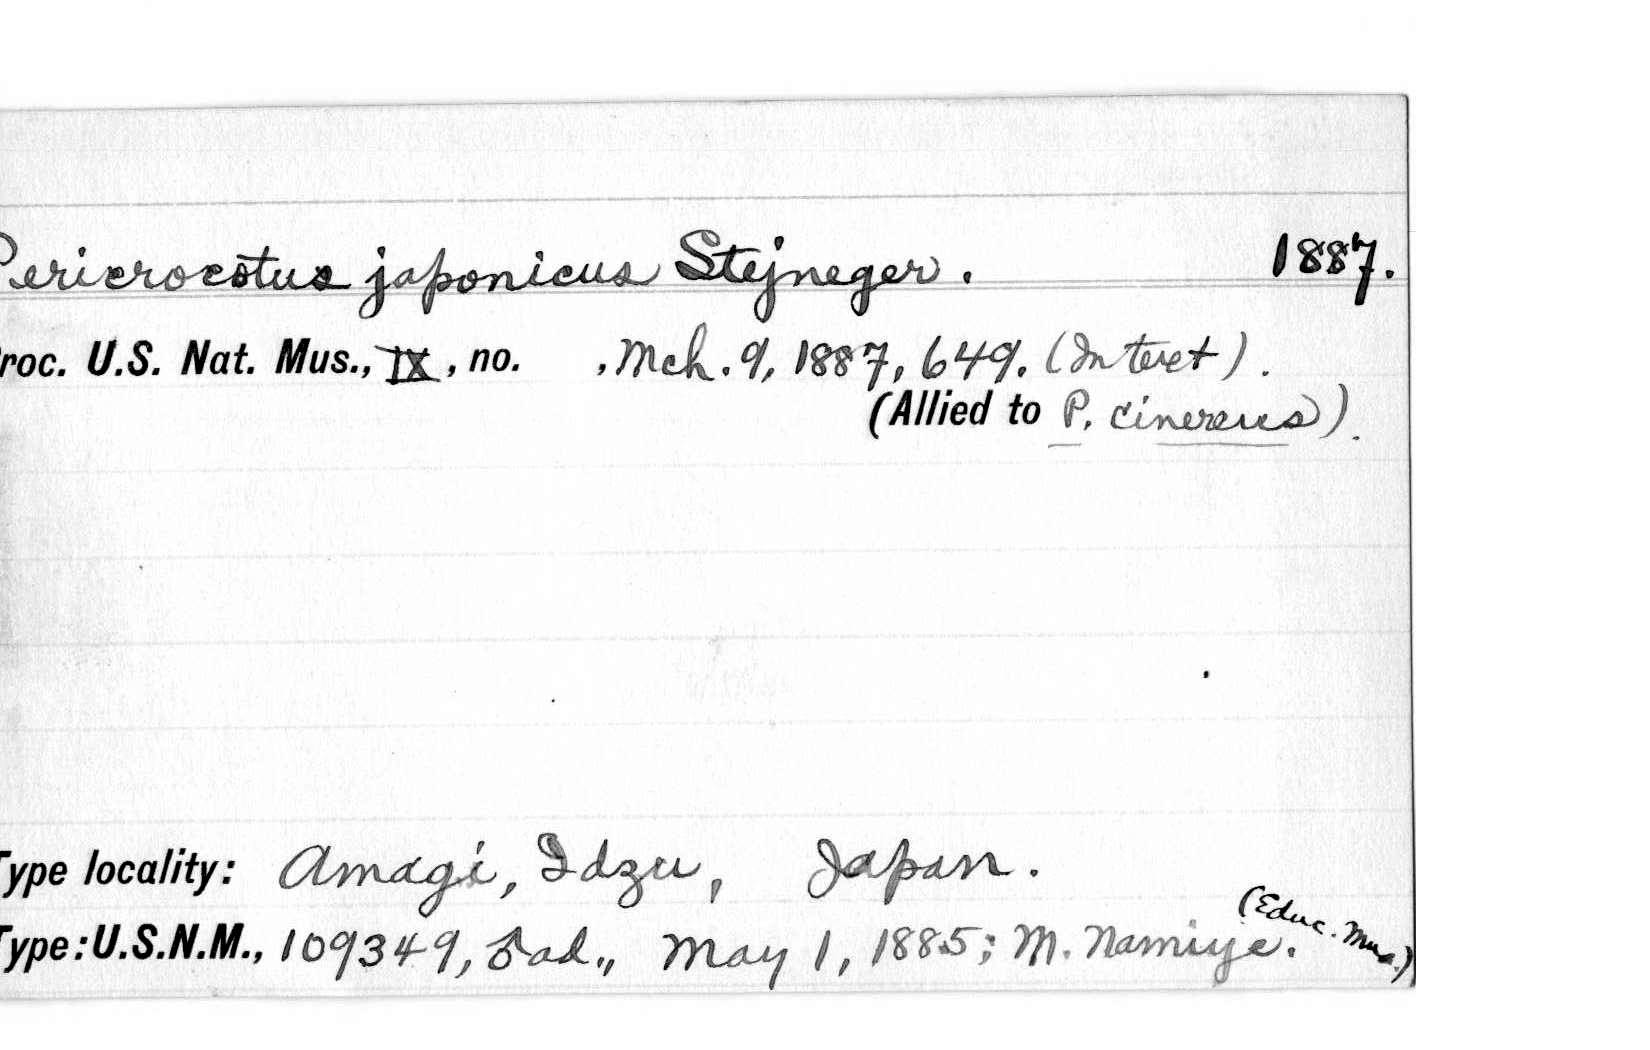 Pericrocotus japonicus Stejneger. 1887.
Proc. U.S. Nat. Mus., IX, no. , Mch. 9, 1887, 649. (In text).
(Allied to P. cinereus).
Type locality: Amagi, Idzu, Japan.
(Educ. Mus.)
Type: U.S.N.M., 109349, ♂ ad., May 1, 1885; M. Namiye.